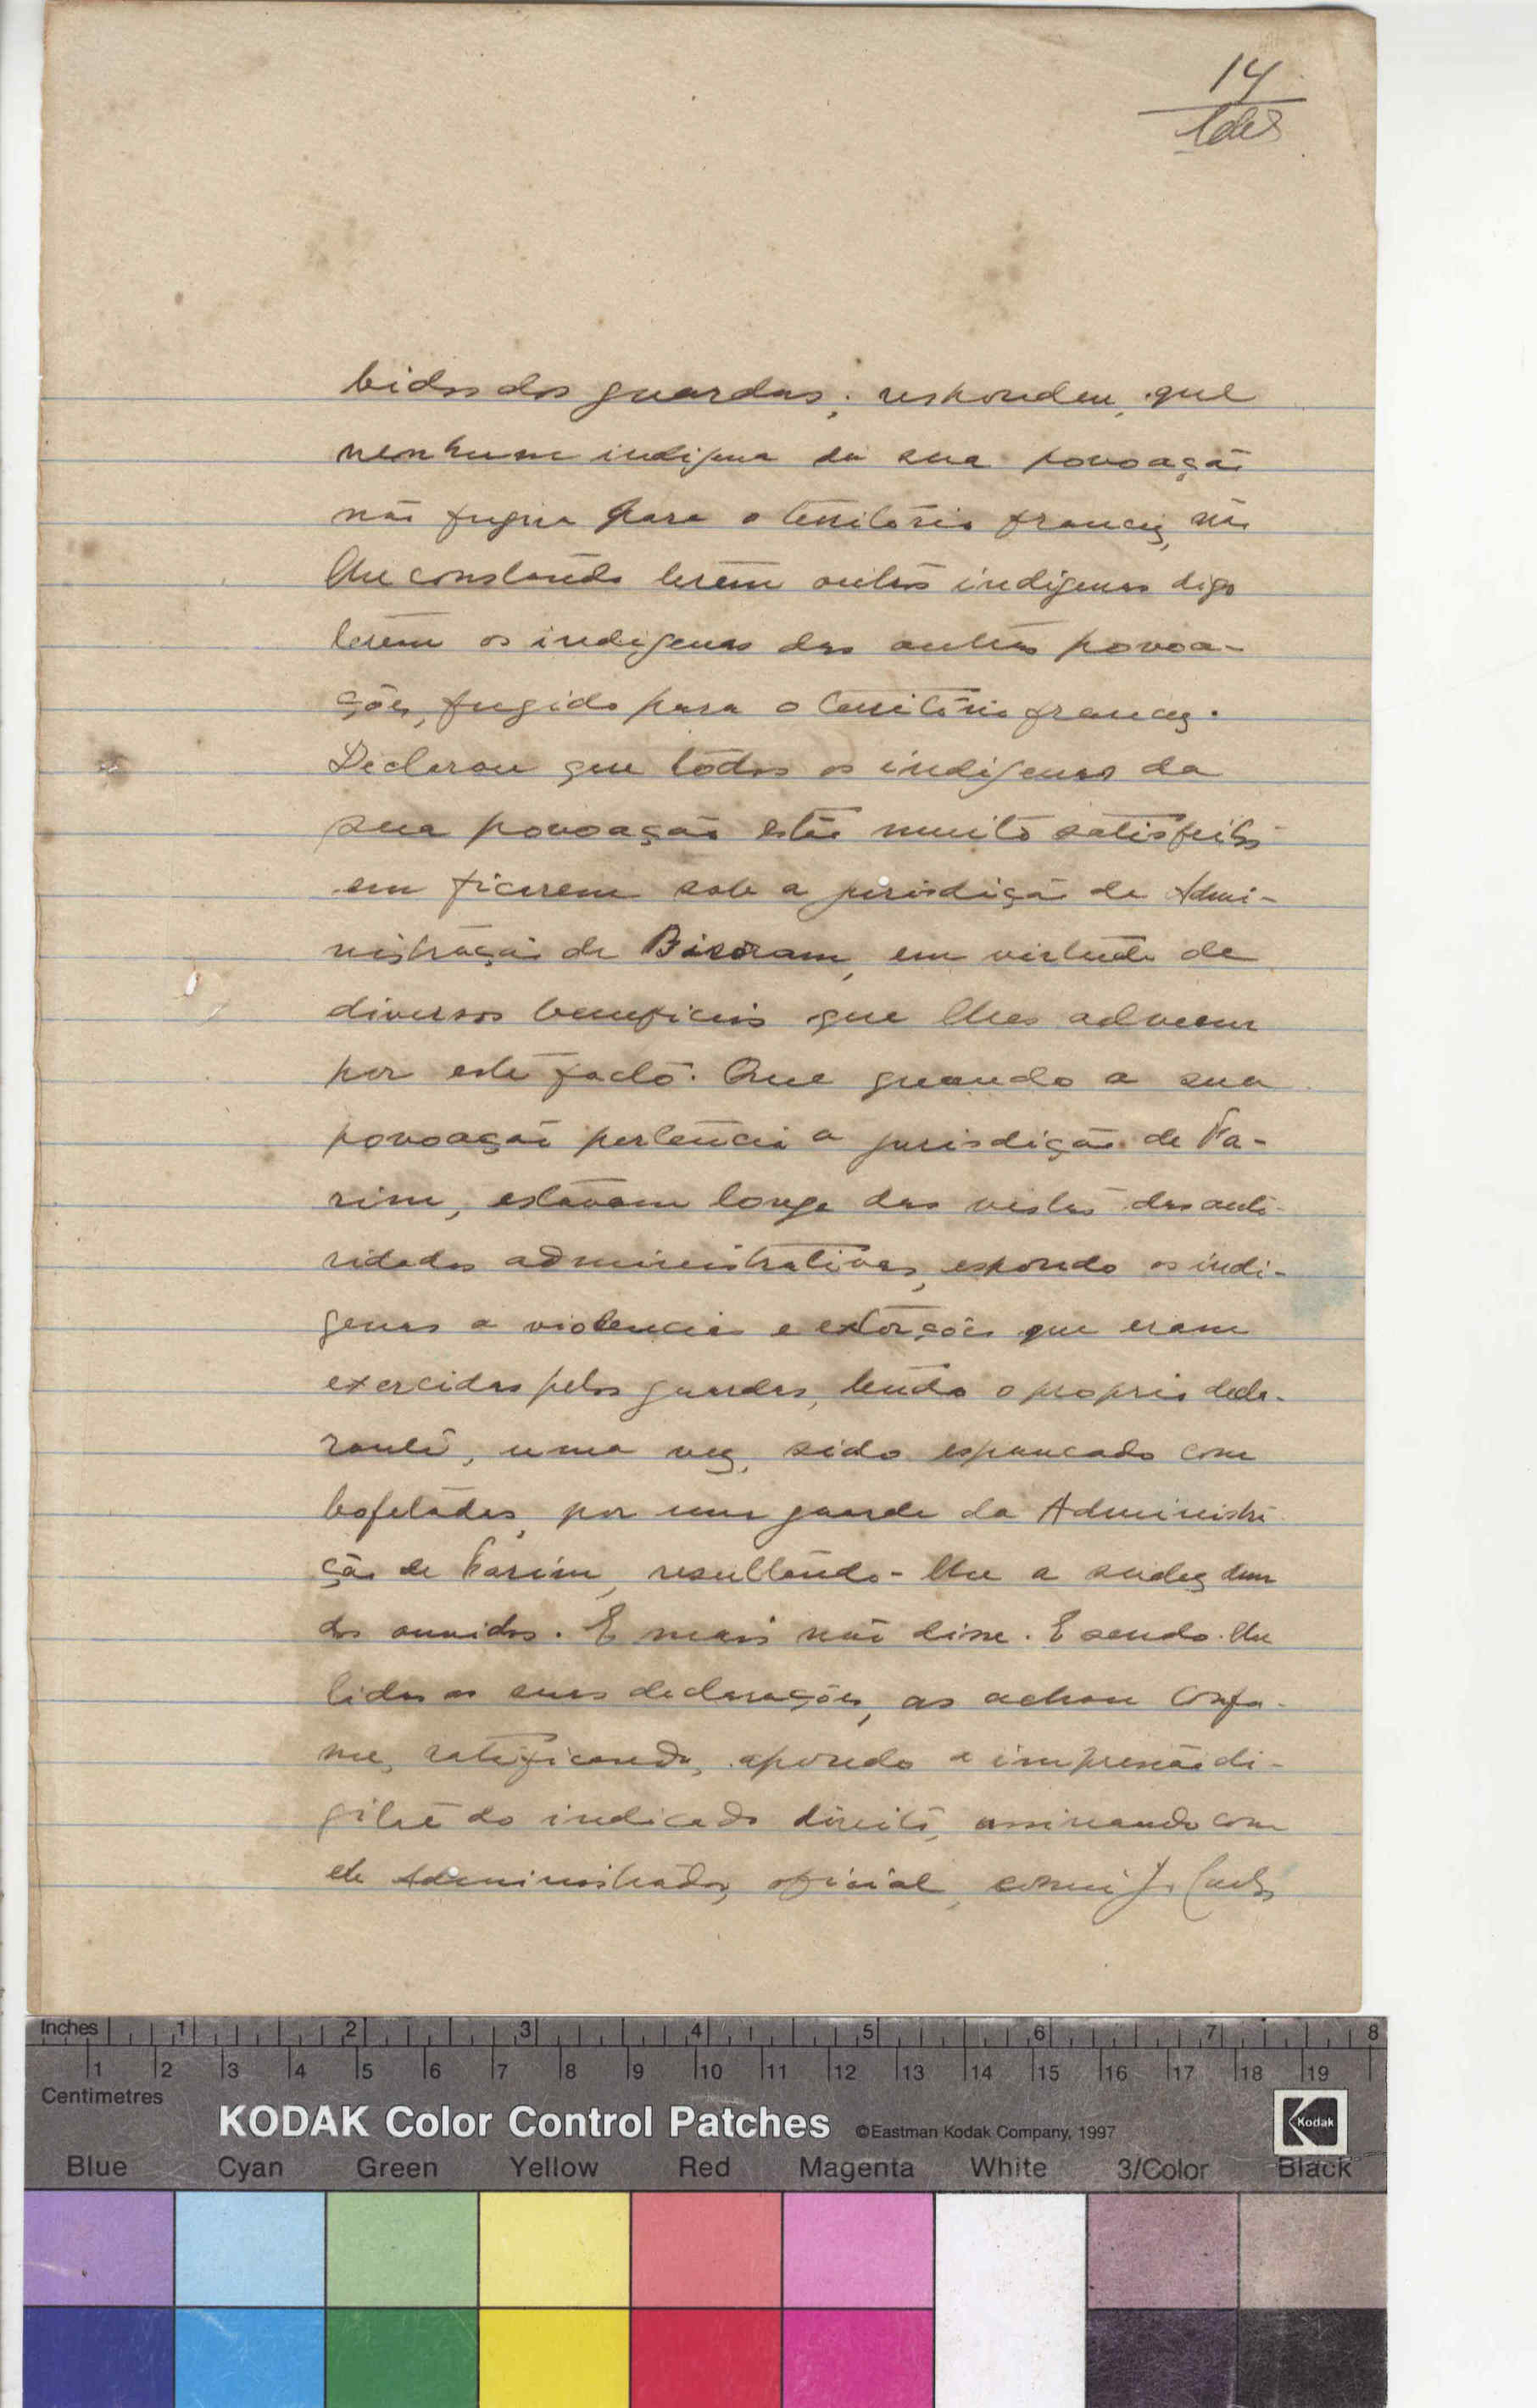 14
bidos dos guardas; respondeu, que
nenhum indigena da sua povoação
não fugira para o território francez, não
lhe constando terem outros indigenas digo
terem os indigenas das outras povoa-
ções, fugido para o território francez.
Declarou que todos os indigenas da
sua povoação estão muito satisfeitos
em ficarem sob a jurisdição de Admi-
nistração de Bissoram, em virtude de
diversos beneficios que lhes adveem
por este facto. Que quando a sua
povoação pertencia a jurisdição de Fa-
rim, estavam longe das vistas das auto-
ridades administrativas, expondo os indi-
genas a violencias e extorções que eram
exercidas pelos guardas, tendo o proprio decla-
rante, uma vez, sido espancado com
bofetadas, por um guarda da Administra
ção de Farim, resultando-lhe a surdez dum
dos ouvidos. E mais não disse. E sendo-lhe
lidas as suas declarações, as achou confor-
me, ratificando, apondo a impressão di-
gital do indicado direito, assinando com
ele Administrador, oficial, comigo
Inches 1 2 3 4 5 6 7 8
1 2 3 4 5 6 7 8 9 10 11 12 13 14 15 16 17 18 19
Centimetres
KODAK Color Control Patches ©Eastman Kodak Company, 1997 Kodak
Blue Cyan Green Yellow Red Magenta White 3/Color Black